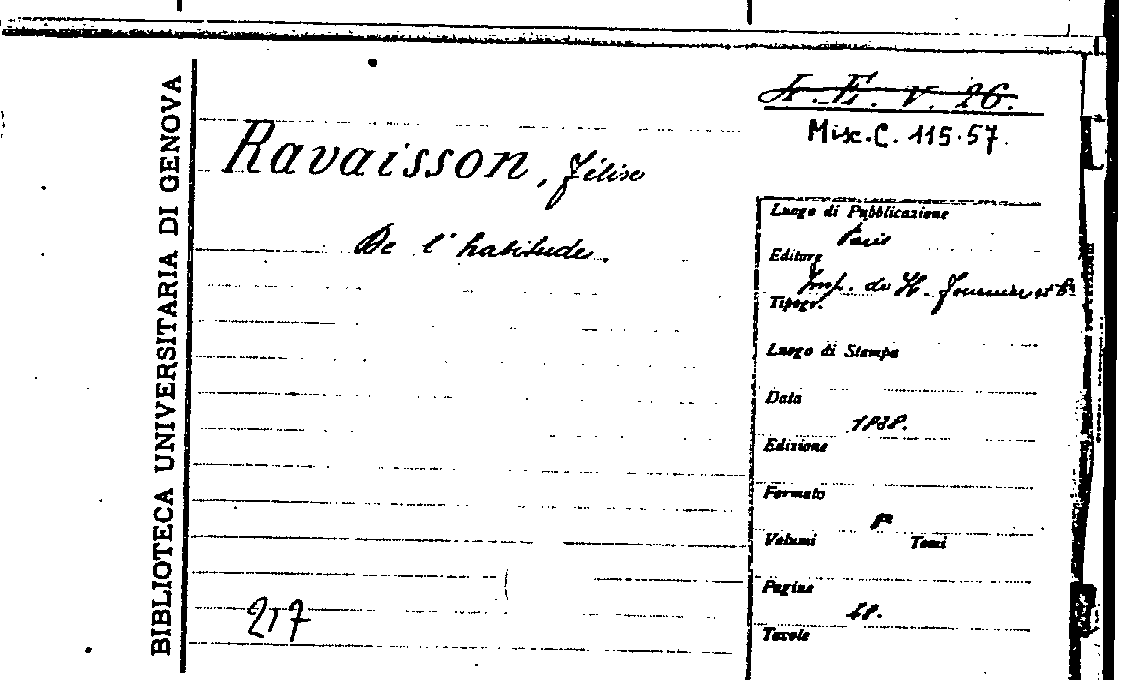 BIBLIOTECA UNIVERSITARIA DI GENOVA
A. E. V. 26.
Misc. C. 115.57.
Ravaisson, Félix
De l'habitude.
Luogo di Pubblicazione
Paris
Editore
Imp. de H. Fournier et Cie
Tipogr.
Luogo di Stampa
Data
1838.
Edizione
Formato
8º
Volumi Tomi
Pagine
48.
Tavole
217